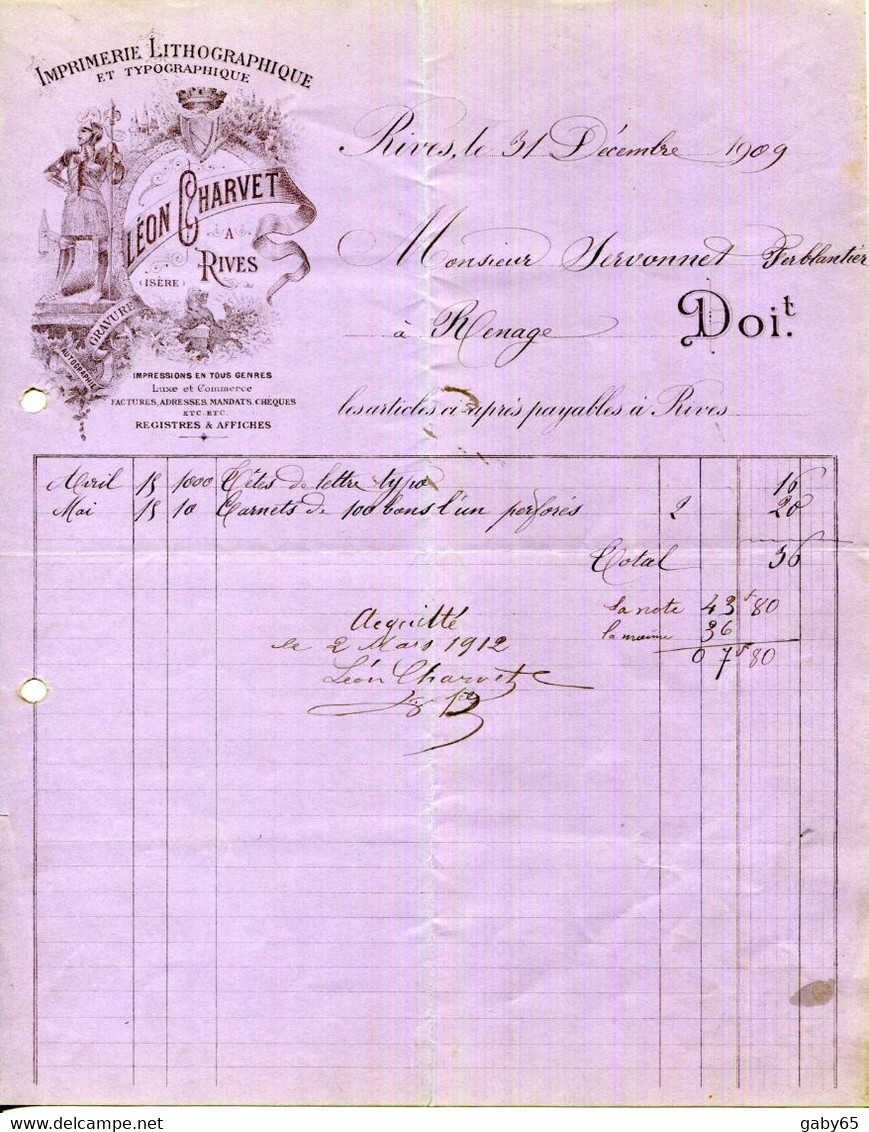 IMPRIMERIE LITHOGRAPHIQUE
ET TYPOGRAPHIQUE
LÉON CHARVET
A
RIVES
(ISÈRE)
GRAVURE
AUTOGRAPHIE
IMPRESSIONS EN TOUS GENRES
Luxe et Commerce
FACTURES, ADRESSES, MANDATS, CHÈQUES
ETC. ETC.
REGISTRES & AFFICHES
Rives, le 31 Décembre 1909
Monsieur Servonnet Ferblantier
à Renage Doit.
les articles ci-après payables à Rives
Avril 15 1000 Têtes de lettre typo 16
Mai 15 10 Carnets de 100 bons l'un perforés 2 20
Total 36
Sa note 43f 80
la mienne 36
0 7f 80
Acquitté
le 2 Mars 1912
Léon Charvet
gaby65